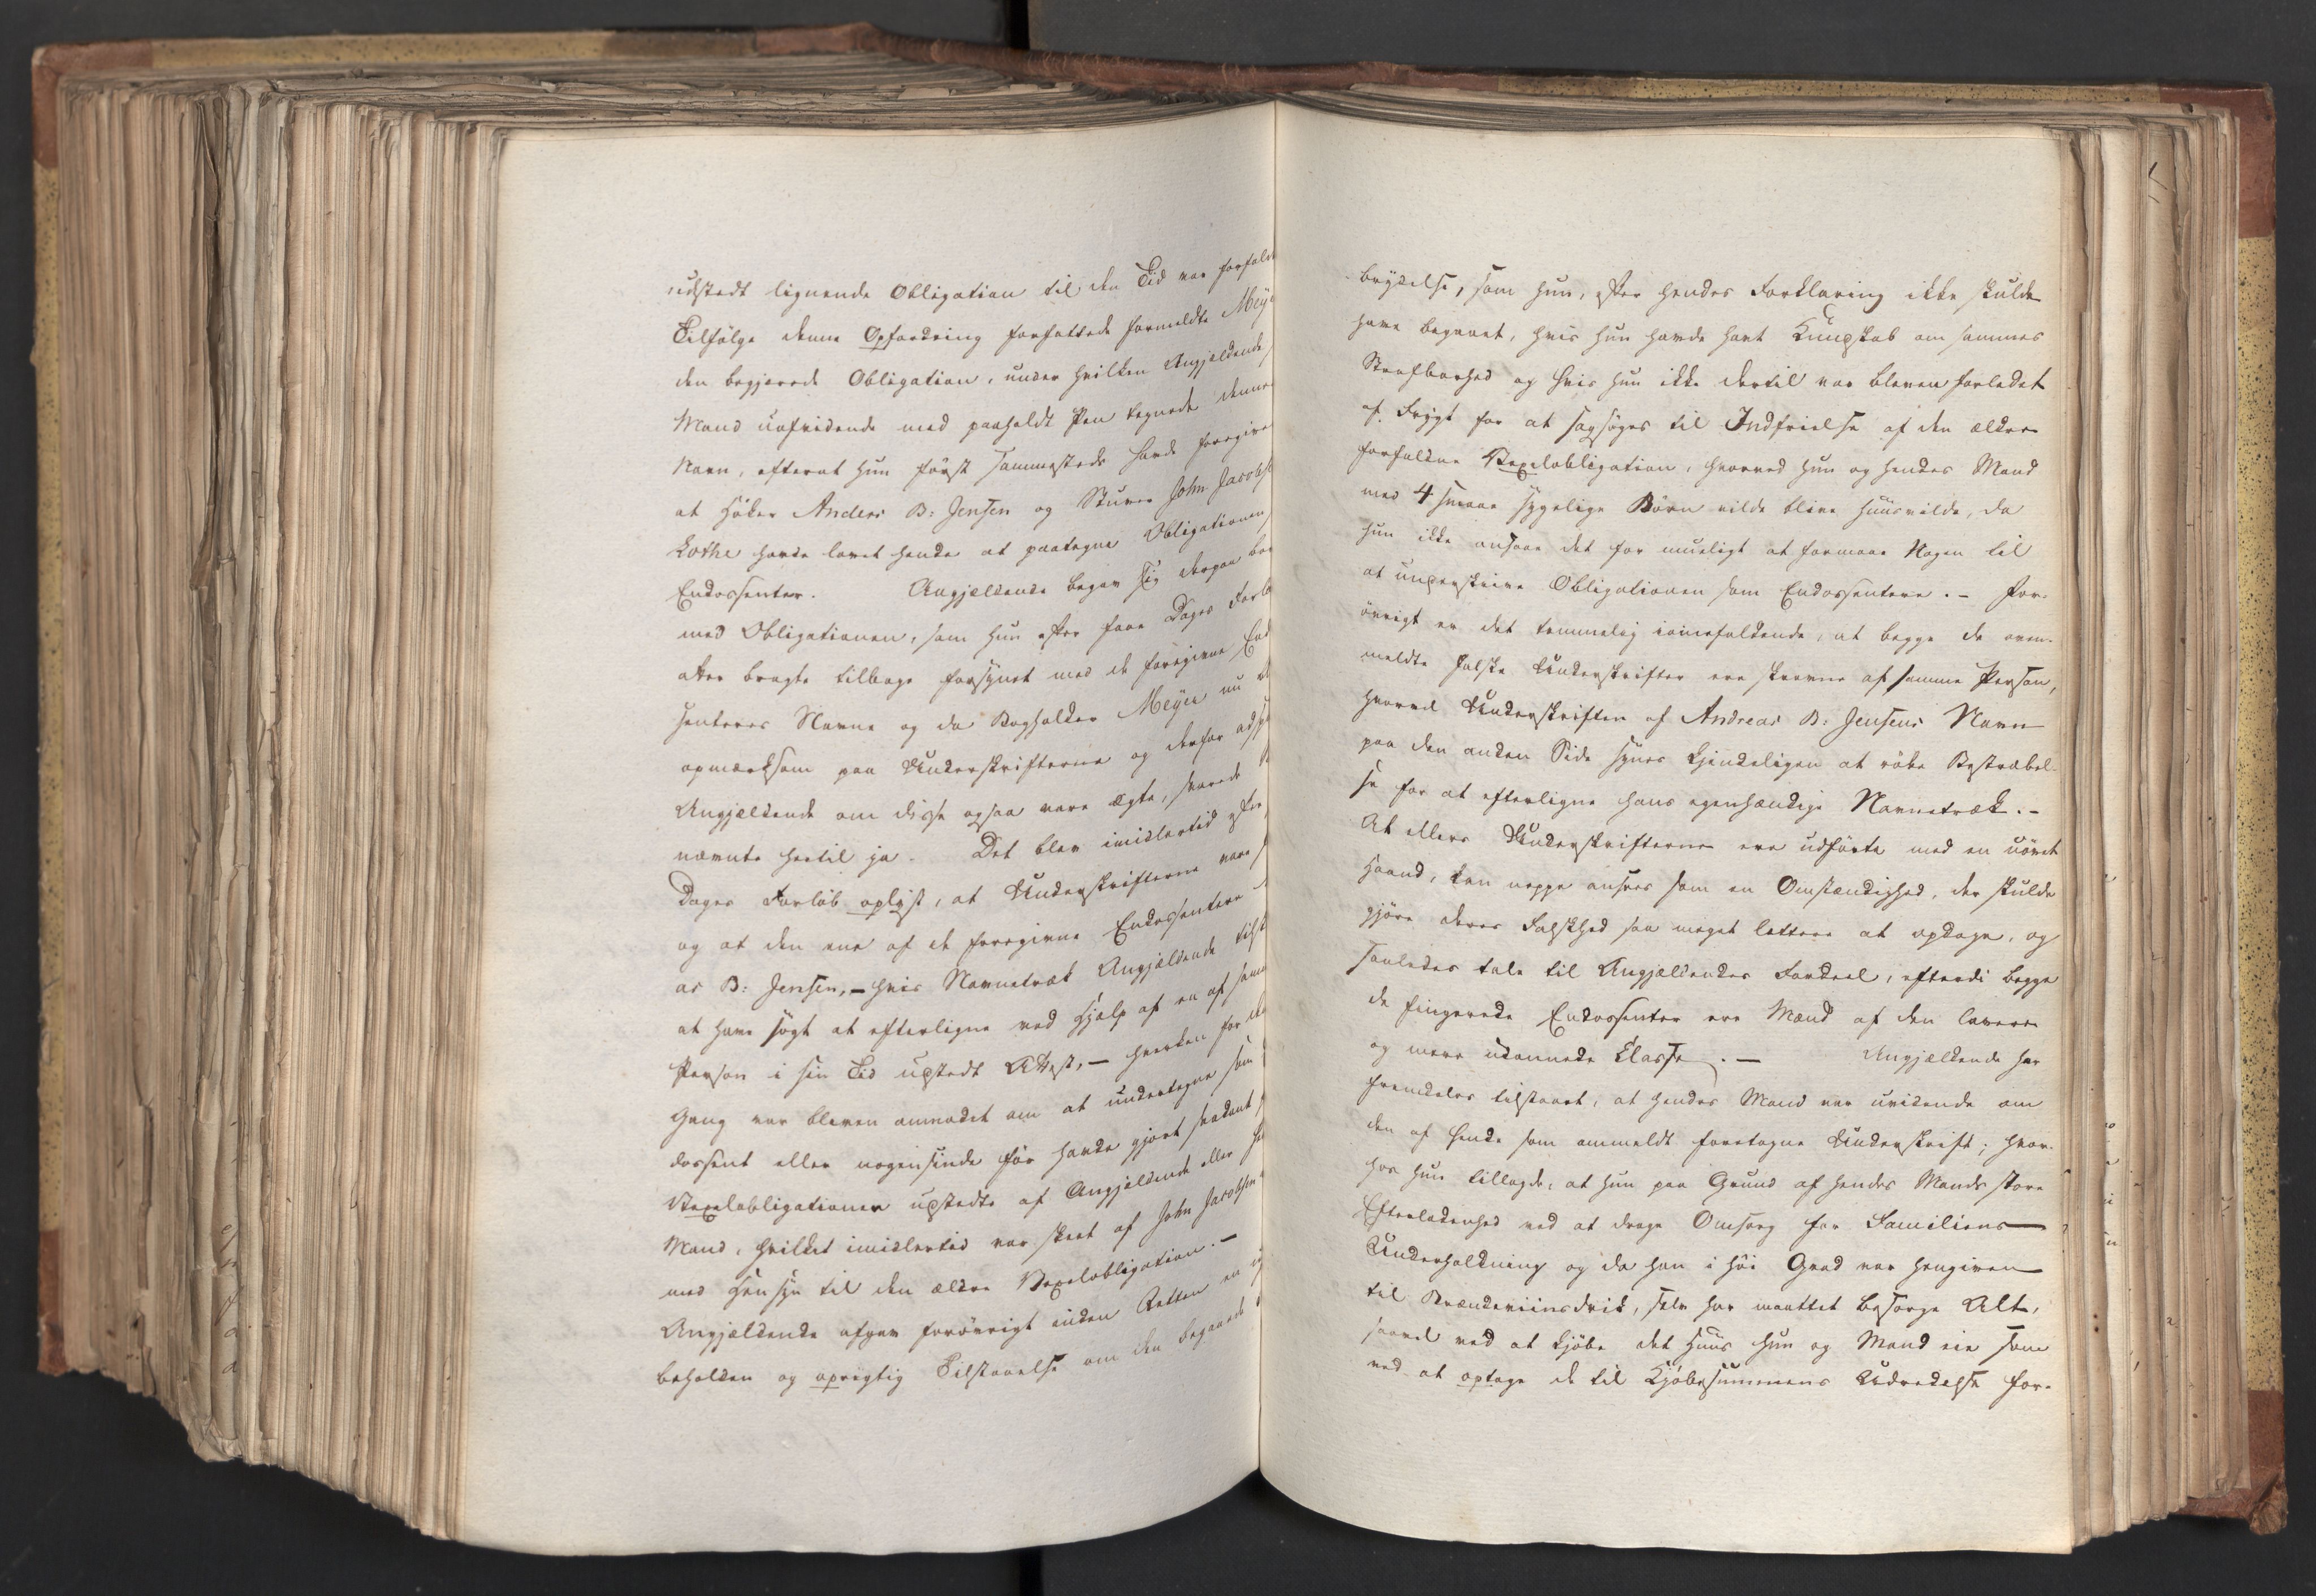 udstædt lignende Obligation til den Tid var forfald
Tilfølge denne Opfordring forfattede formeldte Meÿe
den begjærede Obligation, under hvilken Angjældende,
Mand uafvidende med paaholdt Pen tegnede dennes
Navn, efterat hun först sammesteds havde foregive
at Höker Anders B: Jensen og Stuver John Jacobse
Lothe havde lovet hende at paategne Obligationen,
Endossenter. Angjældende begav sig derpaa bor
med Obligationen, som hun efter faae Dages Forlö
atter bragte tilbage forsynet med de foregivne End
senteres Navne og da Bogholder Meÿer nu
opmærksom paa Underskrifterne og derfor adsp
Angjældende om disse ogsaa vare ægte, svarede
nævnte hertil ja. Det blev imidlertid efter
Dages Forløb oplyst, at Underskrifterne vare
og at den ene af de foregivne Endossentere
as B: Jensen, - hvis Navnetræk Angjældende tilst
at have søgt at efterligne ved Hjælp af en af samme
Person i sin Tid udstædt Attest, - hverken for de
Gang var bleven anmodet om at undertegne som
dossent eller nogensinde för havde gjort saadant
Vexelobligationer udstedte af Angjældende eller he
Mand, hvilket imidlertid var skeet af John Jacobsen
med Hensyn til den ældre Vexelobligation. -
Angjældende afgav forövrigt inden Retten en u
beholden og oprigtig Tilstaaelse om den begaaede
brydelse, som hun, efter hendes Forklaring ikke skulde
have begaaet, hvis hun havde havt Kundskab om sammes
Strafbarhed og hvis hun ikke dertil var bleven forledet
af Frygt for at sagsøges til Indfrielse af den ældre
forfaldne Vexelobligation, hvorved hun og hendes Mand
med 4 smaae sygelige Börn vilde blive huusvilde, da
hun ikke ansaae det for mueligt at formaae Nogen til
at underskrive Obligationen som Endossentere. - For-
övrigt er det temmelig iøinefaldende, at begge de oven-
meldte falske Underskrifter ere skrevne af samme Person,
hvorved Underskriften af Andreas B: Jensens Navn
paa den anden Side synes kjendeligen at røbe Bestræbel-
se for at efterligne hans egenhændige Navnetræk. -
At ellers Underskrifterne ere udförte med en uövet
Haand, kan neppe ansees som en Omstændighed, der skulde
gjöre deres Falskhed saa meget lettere at opdage, og
saaledes tale til Angjældendes Fordeel, efterdi begge
de fingerede Endossenter ere Mænd af den lavere
og mere udannede Classe. - Angjældende har
fremdeles tilstaaet, at hendes Mand var uvidende om
den af hende som anmeldt foretagne Underskrift; hvor-
hos hun tillagde, at hun paa Grund af hendes Mands store
Efterladenhed ved at drage Omsorg for Familiens
Underholdning og da han i høi Grad var hengiven
til Brændeviinsdrik, selv har maattet besørge Alt,
saavel ved at kjöbe det Huus hun og Mand eie som
ved at optage de til Kjöbesummens Udredelse for-